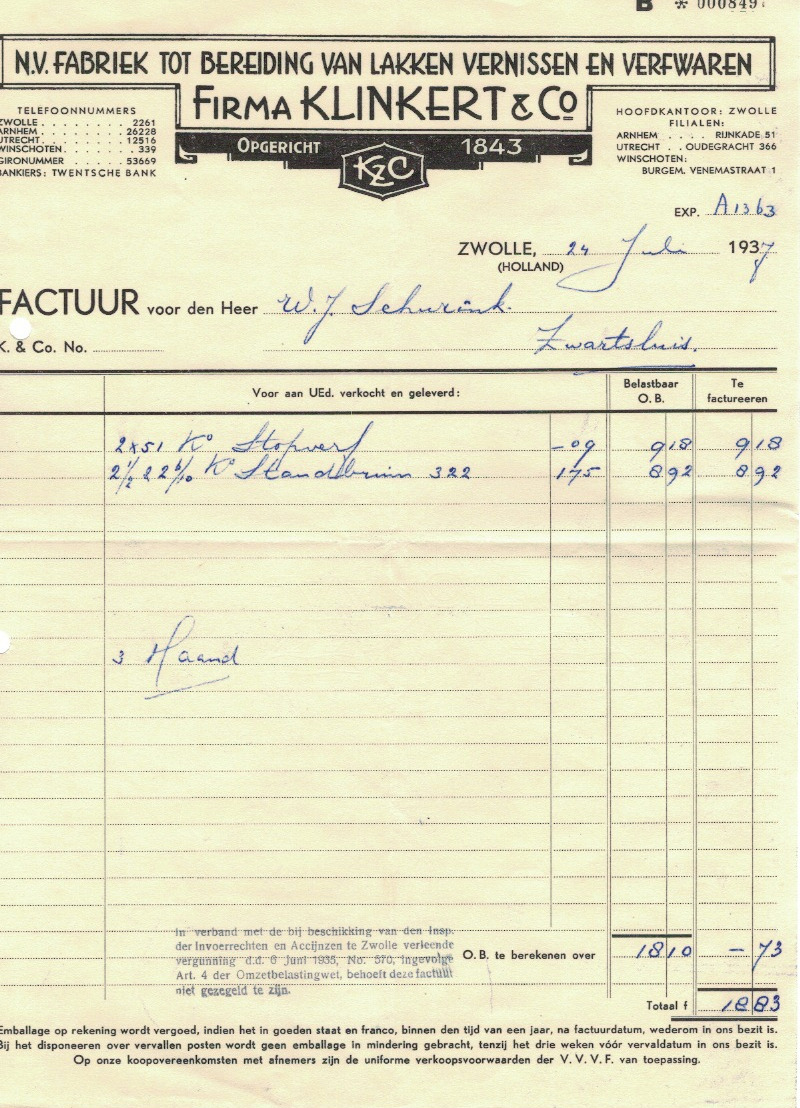 B * 000849
N.V. FABRIEK TOT BEREIDING VAN LAKKEN VERNISSEN EN VERFWAREN
FIRMA KLINKERT & Co
OPGERICHT 1843
KZC
TELEFOONNUMMERS
ZWOLLE . . . . . . . . 2261
ARNHEM . . . . . . . 26228
UTRECHT . . . . . . . 12516
WINSCHOTEN . . . . . . 339
GIRONUMMER . . . . . 53669
BANKIERS: TWENTSCHE BANK
HOOFDKANTOOR: ZWOLLE
FILIALEN:
ARNHEM . . . . RIJNKADE 51
UTRECHT . . OUDEGRACHT 366
WINSCHOTEN:
BURGEM. VENEMASTRAAT 1
EXP. A1363
ZWOLLE, 24 Juli 1937
(HOLLAND)
FACTUUR voor den Heer W.J. Schurink.
K. & Co. No. Zwartsluis.
Voor aan UEd. verkocht en geleverd: Belastbaar O.B. Te factureeren
2x51 Ko Stopverf -09 918 918
Ko Standbruin 322 175 892 892
3 Maand
In verband met de bij beschikking van den Insp.
der Invoerrechten en Accijnzen te Zwolle verleende
vergunning d.d. 6 Juni 1935, No. 570, ingevolge
Art. 4 der Omzetbelastingwet, behoeft deze factuur
niet gezegeld te zijn.
O.B. te berekenen over 1810 – 73
Totaal f 1883
Emballage op rekening wordt vergoed, indien het in goeden staat en franco, binnen den tijd van een jaar, na factuurdatum, wederom in ons bezit is.
Bij het disponeeren over vervallen posten wordt geen emballage in mindering gebracht, tenzij het drie weken vóór vervaldatum in ons bezit is.
Op onze koopovereenkomsten met afnemers zijn de uniforme verkoopsvoorwaarden der V.V.V.F. van toepassing.